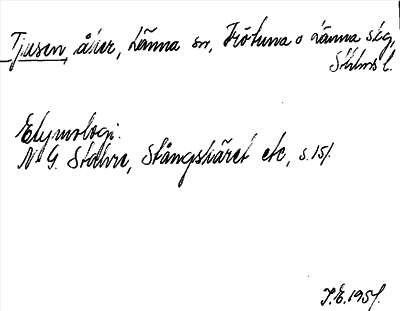 Tjusan, åker, Länna sn, Frötuna o Länna skg,
Sthlms l.
Etymologi:
N G. Stahre, Stångskäret etc, s. 151.
J.E. 1957.